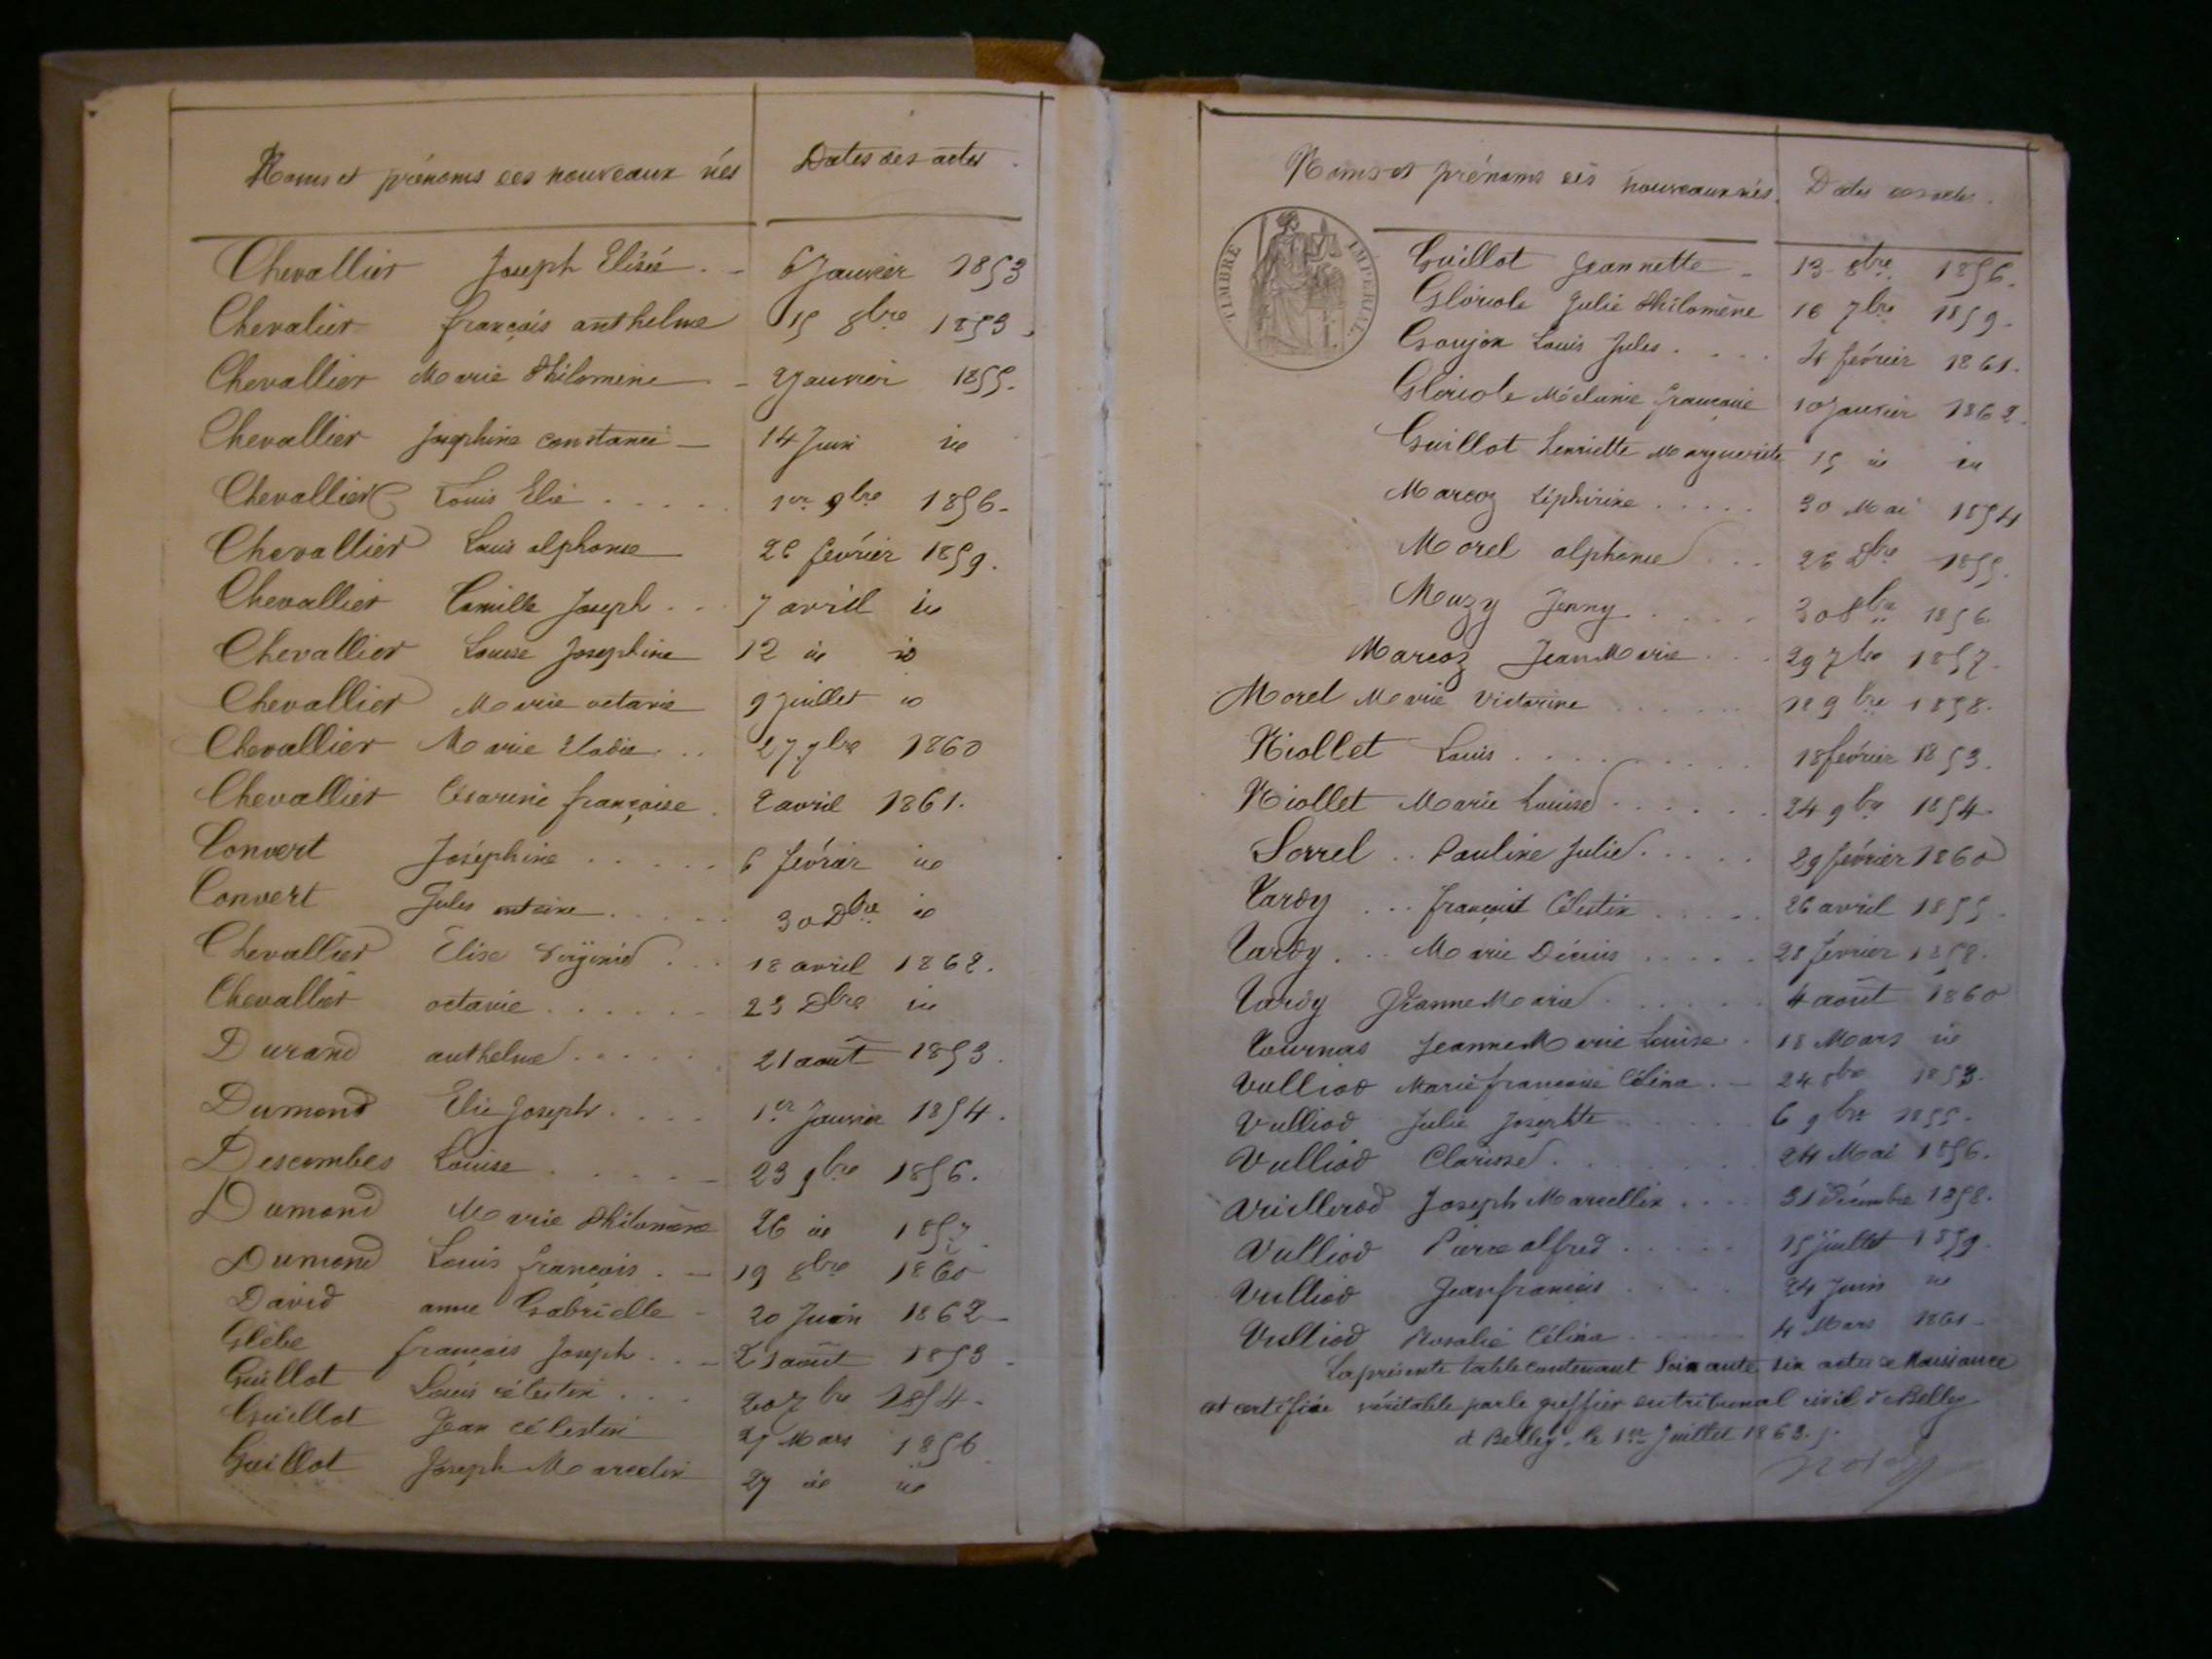 Noms et prénoms des nouveaux nés Dates des actes
Chevallier Joseph Elisée 6 Janvier 1853
Chevalier françois anthelme 15 8bre 1853
Chevallier Marie Philomène 2 Janvier 1855
Chevallier Josephine constance 14 Juin id
Chevallier Louis Elie 1er 9bre 1856
Chevallier Louis alphonse 26 février 1859
Chevallier Camille Joseph 7 avril id
Chevallier Louise Josephine 12 id id
Chevallier Marie octavie 9 Juillet id
Chevallier Marie Elodie 27 7bre 1860
Chevallier Césarine françoise 2 avril 1861
Convert Joséphine 6 février id
Convert Jules antoine 30 Dbre id
Chevallier Elise Virginie 18 avril 1862
Chevallier octavie 23 Dbre id
Durand anthelme 21 août 1853
Dumond Elie Joseph 1er Janvier 1854
Descombes Louise 23 9bre 1856
Dumond Marie Philomène 26 id 1857
Dumond Louis françois 19 8bre 1860
David anne Gabrielle 20 Juin 1862
Glèbe françois Joseph 21 août 1853
Guillot Louis célestin 20 7bre 1854
Guillot Jean célestin 27 Mars 1856
Guillot Joseph Marcelin 27 id id
Noms et prénoms des nouveaux nés Dates des actes
TIMBRE IMPÉRIAL
Guillot Jeannette 13 8bre 1856
Gloriole Julie Philomène 16 7bre 1859
Goujon Louis Jules 4 février 1861
Gloriole Mélanie françoise 10 Janvier 1862
Guillot henriette Marguerite 15 id id
Marcoz Zéphirine 30 Mai 1854
Morel alphonse 26 Dbre 1855
Muzy Jenny 30 8bre 1856
Marcoz Jean Marie 29 7bre 1857
Morel Marie Victorine 18 9bre 1858
Niollet Louis 18 février 1853
Niollet Marie Louise 24 9bre 1854
Sorrel Pauline Julie 29 février 1860
Tardy françois Célestin 26 avril 1855
Tardy Marie Dénis 28 février 1858
Tardy Jeanne Marie 4 août 1860
Tournas Jeanne Marie Louise 18 Mars id
Vulliod Marie françoise Célina 24 8bre 1853
Vulliod Julie Josephte 6 9bre 1855
Vulliod Clarisse 24 Mai 1856
Joseph Marcellin 31 Décembre 1858
Vulliod Pierre alfred 15 juillet 1859
Vulliod Jean françois 24 Juin id
Vulliod Rosalie Célina 4 Mars 1861
La présente table contenant Soixante six actes de Naissance
est certifiée véritable par le greffier du tribunal civil de Belley
à Belley, le 1er Juillet 1863